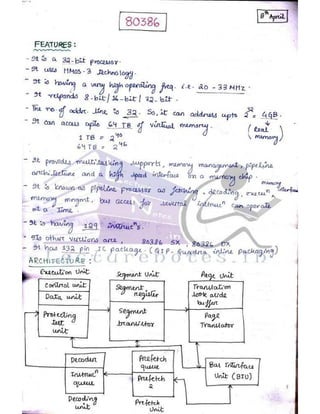 80386
8th April
FEATURES :
- It is a 32-bit processor.
- It uses HMOS-3 technology.
- It is having a very high operating freq. i.e. 20 - 33 MHz.
- It responds 8-bit / 16-bit / 32-bit.
- The no of addr. line is 32. So, it can address upto 2^32 = 4GB.
(Real memory)
- It can access upto 64 TB of virtual memory.
1 TB = 2^40
64 TB = 2^46
- It provides multitasking supports, memory management, pipeline
architecture and a high speed interface on a memory chip.
- It is known as pipeline processor as fetching, decoding, execution
memory mngmnt, bus access for several instrucn can operate
at a time.
- It is having 129 Instrucns.
- Its other versions are, 80386 SX, 80386 DX
- It has 132 pin IC package (QIP- Quadra inline packaging)
ARCHITECTURE:
Execution Unit
Segment Unit
Page Unit
Control unit
Data unit
Protecting test unit
Segment register
Segment translator
Translation look aside buffer
Page Translator
Decoder
Instrucn queue
Decoding unit
Prefetch queue
Prefetch 2
Prefetch Unit
Bus Interface Unit (BIU)